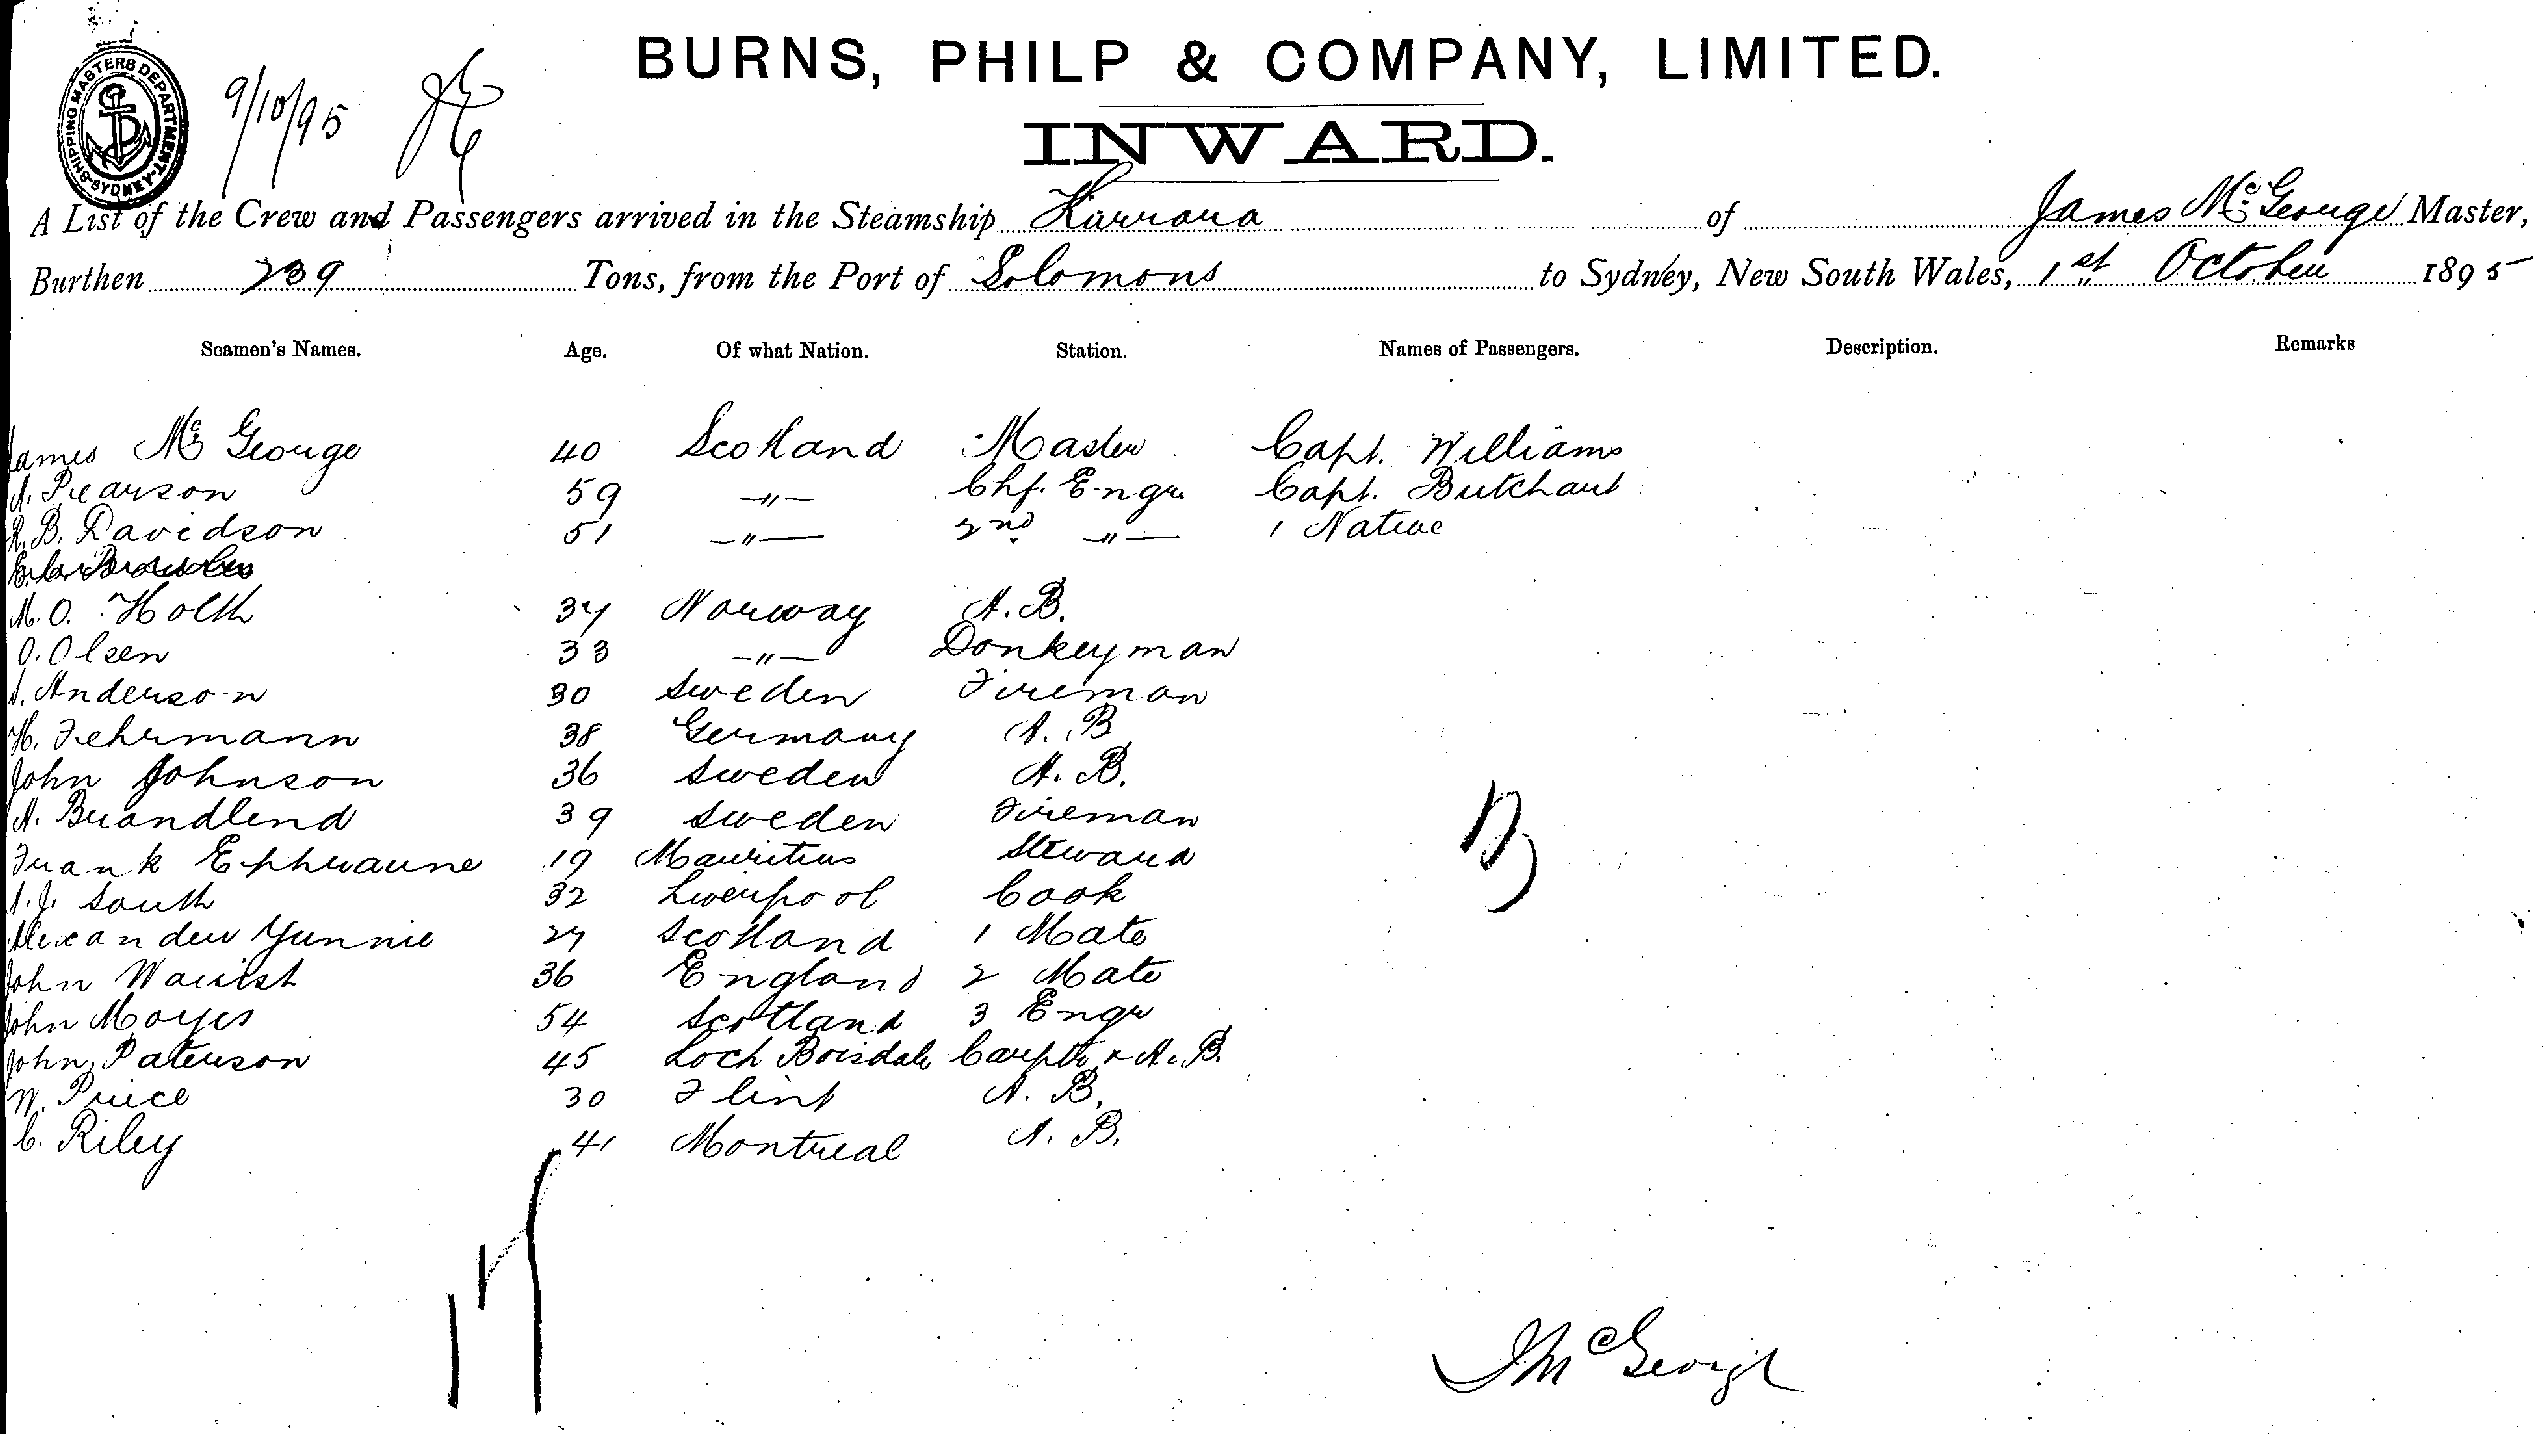 BURNS, PHILP & COMPANY, LIMITED.
SHIPPING MASTERS DEPARTMENT SYDNEY
9/10/95
INWARD.
A List of the Crew and Passengers arrived in the Steamship Kurrara of James McGeorge Master,
Burthen 239 Tons, from the Port of Solomons to Sydney, New South Wales, 1st October 1895
Seamen's Names. Age. Of what Nation. Station. Names of Passengers. Description. Remarks
James McGeorge 40 Scotland Master Capt. Williams
A. Pearson 59 —"— Chf. Engr. Capt. Butchart
R. B. Davidson 51 —"— 2nd —"— 1 Native
M. O. Holth 34 Norway A.B.
O. Olsen 33 —"— Donkeyman
A. Anderson 30 Sweden Fireman
H. Fehrmann 38 Germany A.B
John Johnson 36 Sweden A.B.
A. Brandlend 39 Sweden Fireman
Frank Ephraune 19 Mauritius Steward
A. J. South 32 Liverpool Cook
Alexander Yunnie 27 Scotland 1 Mate
John 36 England 2 Mate
John Moyes 54 Scotland 3 Engr
John Paterson 45 Loch Boisdale Carptr & A.B.
W. Price 30 Flint A.B.
C. Riley 41 Montreal A.B.
17
J McGeorge